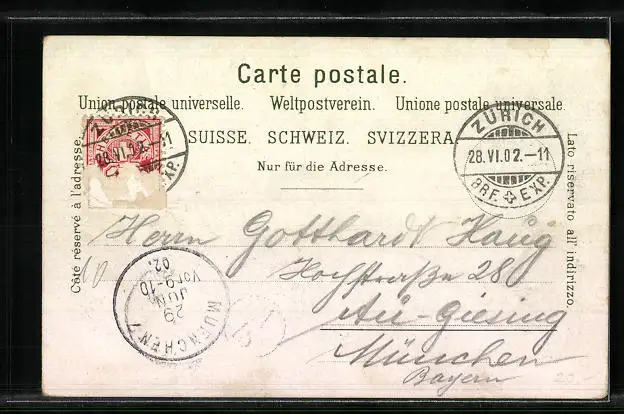 Carte postale.
Union postale universelle. Weltpostverein. Unione postale universale.
SUISSE. SCHWEIZ. SVIZZERA
Nur für die Adresse.
Côté réservé à l'adresse.
Lato riservato all' indirizzo.
ZÜRICH
28.VI.02.-11
EXP.
ZÜRICH
28.VI.02.-11
BRF. EXP.
Herrn Gotthardt Haug
Hochstraße 28
Au-Giesing
München
Bayern
MUENCHEN
29
JUN
Vor 9-10
02.